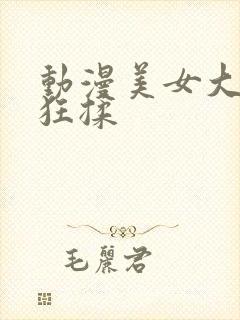 動漫美女大
狂揉
毛麗君